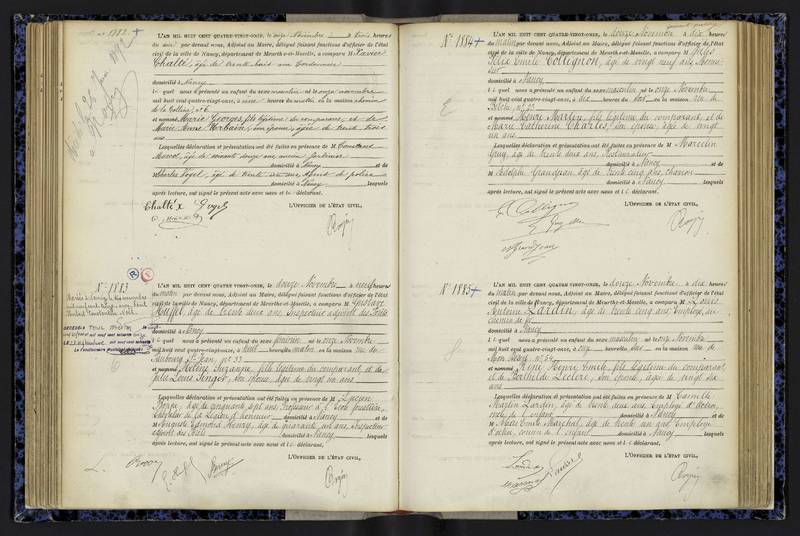 L'AN MIL HUIT CENT QUATRE-VINGT-ONZE, le onze Novembre à trois heures
du soir par devant nous, Adjoint au Maire, délégué faisant fonctions d'officier de l'état
civil de la ville de Nancy, département de Meurthe-et-Moselle, a comparu M. Xavier
Chalté, âgé de trente trois ans Cordonnier
domicilié à Nancy
lequel nous a présenté un enfant du sexe masculin né le onze novembre
mil huit cent quatre-vingt-onze, à heures du matin en la maison chemin
de la Colline, n° 6
et nommé Marie Georges fils légitime du comparant, et de
Marie Anne Urbain, son épouse, âgée de trente trois
ans
Lesquelles déclaration et présentation ont été faites en présence de M. Constant
âgé de soixante douze ans ancien Jardinier
domicilié à Nancy et de
M. Charles Vogel, âgé de trente ans Agent de police
domicilié à Nancy lesquels
après lecture, ont signé le présent acte avec nous et le déclarant.
L'OFFICIER DE L'ÉTAT CIVIL,
Chalté x Vogel
N° 1883
L'AN MIL HUIT CENT QUATRE-VINGT-ONZE, le douze Novembre à neuf heures
du matin par devant nous, Adjoint au Maire, délégué faisant fonctions d'officier de l'état
civil de la ville de Nancy, département de Meurthe-et-Moselle, a comparu M. Gustave
Huffel, âgé de trente deux ans, Inspecteur adjoint des Forêts
domicilié à Nancy
lequel nous a présenté un enfant du sexe féminin né le onze Novembre
mil huit cent quatre-vingt-onze, à huit heures du matin en la maison rue du
Faubourg St Jean, n° 33
et nommé Hélène Suzanne, fille légitime du comparant, et de
Julie Louise son épouse, âgée de vingt un ans
Lesquelles déclaration et présentation ont été faites en présence de M. Lucien
Boppe, âgé de cinquante sept ans Professeur à l'Ecole forestière,
Chevalier de la Légion d'honneur domicilié à Nancy et de
M. Auguste Edmond Henry, âgé de quarante un ans, Inspecteur
adjoint des Forêts domicilié à Nancy lesquels
après lecture, ont signé le présent acte avec nous et le déclarant.
L'OFFICIER DE L'ÉTAT CIVIL,
L. Boppe
Henry
N° 1884
L'AN MIL HUIT CENT QUATRE-VINGT-ONZE, le douze Novembre à dix heures
du matin par devant nous, Adjoint au Maire, délégué faisant fonctions d'officier de l'état
civil de la ville de Nancy, département de Meurthe-et-Moselle, a comparu M. Jules
Félix Emile Collignon, âgé de vingt neuf ans
domicilié à Nancy
lequel nous a présenté un enfant du sexe masculin né le onze Novembre
mil huit cent quatre-vingt-onze, à dix heures du soir en la maison rue de
et nommé Henri Martin, fils légitime du comparant, et de
Marie Catherine Charles, son épouse, âgée de vingt
un ans
Lesquelles déclaration et présentation ont été faites en présence de M. Marcelin
âgé de trente deux ans, Restaurateur
domicilié à Nancy et de
M. Adolph Grandjean, âgé de trente cinq ans, charron
domicilié à Nancy lesquels
après lecture, ont signé le présent acte avec nous et le déclarant.
L'OFFICIER DE L'ÉTAT CIVIL,
Collignon
N° 1885
L'AN MIL HUIT CENT QUATRE-VINGT-ONZE, le douze Novembre à dix heures
du matin par devant nous, Adjoint au Maire, délégué faisant fonctions d'officier de l'état
civil de la ville de Nancy, département de Meurthe-et-Moselle, a comparu M. Louis
Antoine Lardin, âgé de trente cinq ans, employé au
chemin de fer
domicilié à Nancy
lequel nous a présenté un enfant du sexe masculin né le onze Novembre
mil huit cent quatre-vingt-onze, à onze heures du soir en la maison rue de
Mon Désert, n° 54
et nommé René Henri Emile, fils légitime du comparant
et de Berthilde Leclerc, son épouse, âgée de vingt six
ans
Lesquelles déclaration et présentation ont été faites en présence de M. Camille
Martin Lardin, âgé de trente deux ans, Employé
oncle de l'enfant domicilié à Nancy et de
M. Emile Marchal, âgé de trente un ans, Employé
cousin de l'enfant domicilié à Nancy lesquels
après lecture, ont signé le présent acte avec nous et le déclarant.
L'OFFICIER DE L'ÉTAT CIVIL,
Lardin